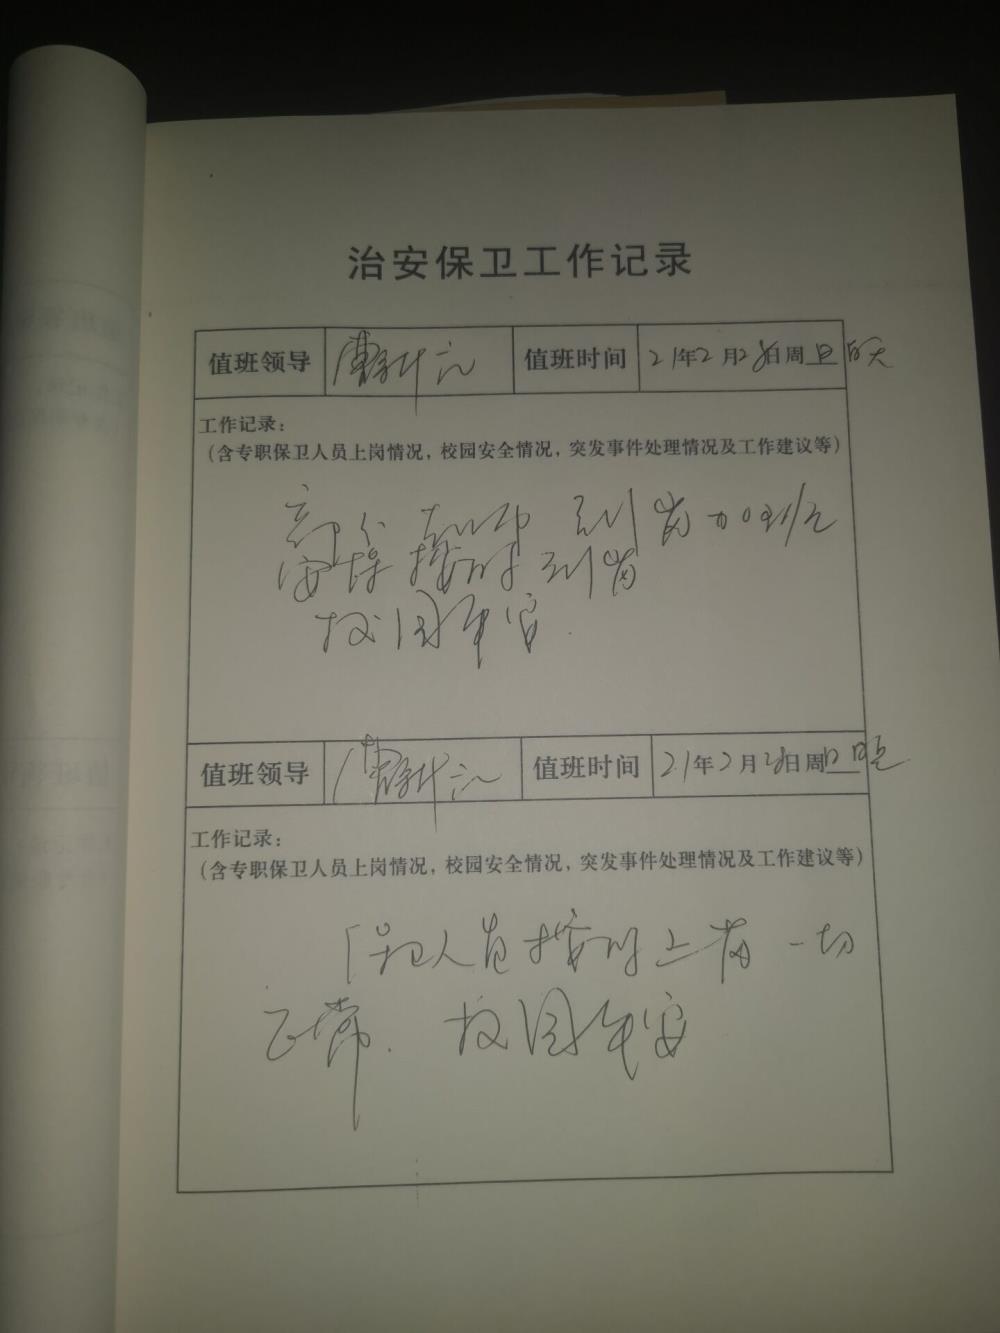 治安保卫工作记录
值班领导 值班时间 21年2月28日周日白天
工作记录：
（含专职保卫人员上岗情况，校园安全情况，突发事件处理情况及工作建议等）
到岗加班
安保按时到岗
校园平安.
值班领导 值班时间 21年2月28日周日晚
工作记录：
（含专职保卫人员上岗情况，校园安全情况，突发事件处理情况及工作建议等）
门卫人员按时上岗一切
正常.校园平安